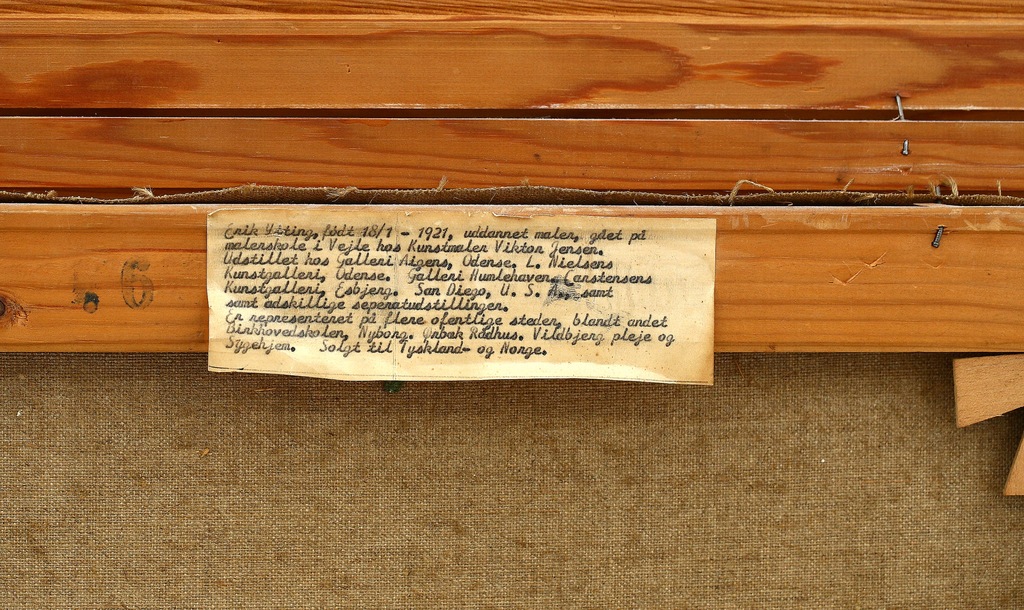 Erik Ytting, født 18/1 - 1921, uddannet maler, gået på
malerskole i Vejle hos Kunstmaler Viktor Jensen.
Udstillet hos Galleri Aigens, Odense. L. Nielsens
Kunstgalleri, Odense. Galleri Humlehaven. Carstensens
Kunstgalleri, Esbjerg. San Diego, U. S. A., samt
samt adskillige seperatudstillinger.
Er representeret på flere ofentlige steder, blandt andet
Birkhovedskolen, Nyborg. Ørbæk Rådhus. Vildbjerg pleje og
Sygehjem. Solgt til Tyskland- og Norge.
6